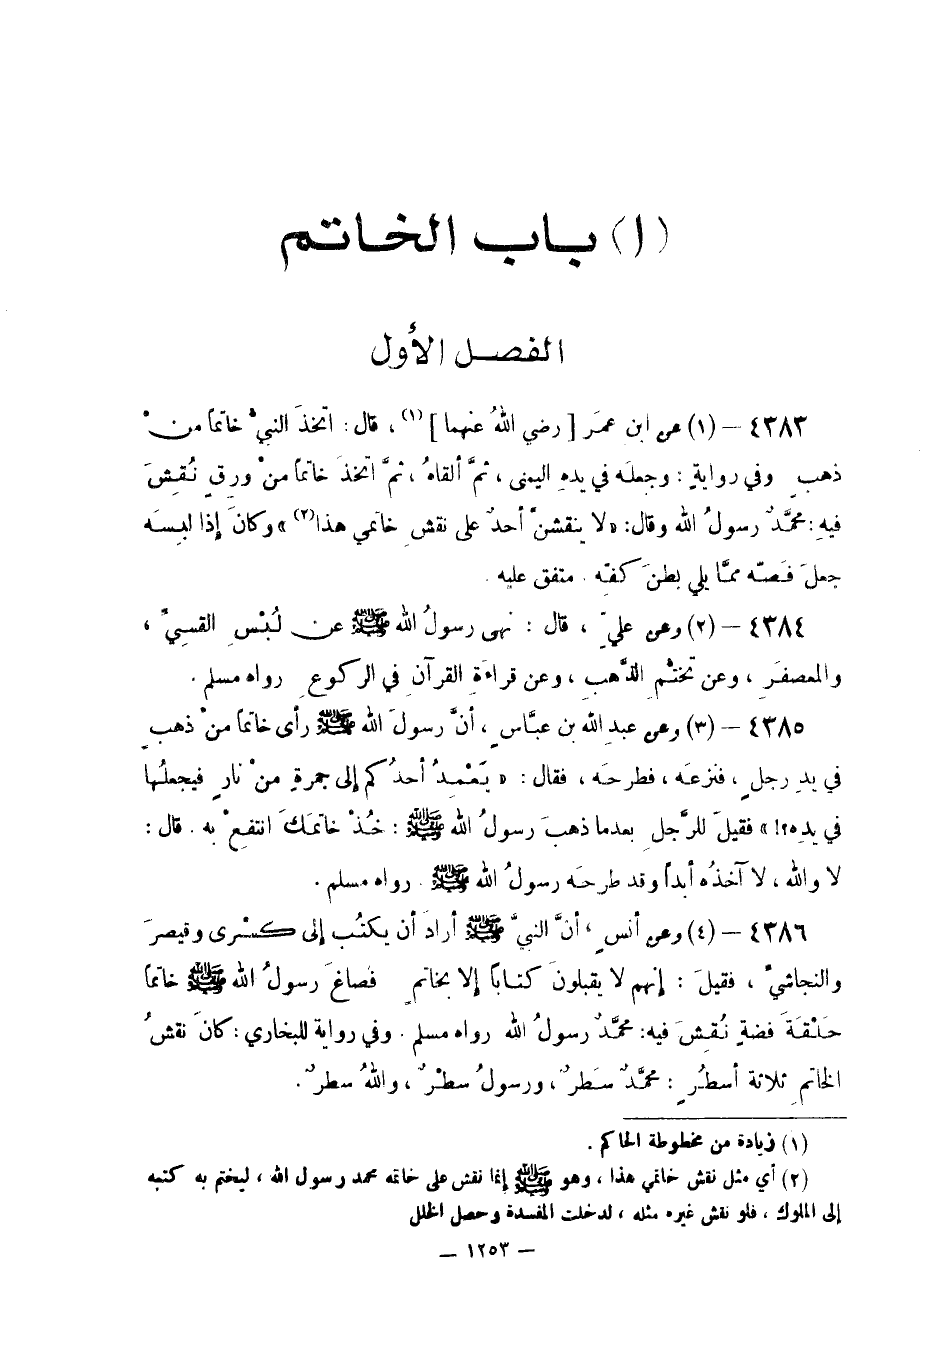 (١) باب الخاتم
الفصل الأول
٤٣٨٣ – (١) عن ابن عمَر [ رضي اللهُ عنهما ](١) ، قال : اتخذَ النبيُّ خاتماً منْ
ذهبٍ وفي روايةٍ : وجعلَه في يدِه اليمنى ، ثمَّ ألقاهُ ، ثمَّ اتخذَ خاتماً منْ ورِقٍ نُقِشَ
فيهِ : محمَّدٌ رسولُ الله وقال : « لا ينقشنَّ أحدٌ على نقشِ خاتمي هذا(٢) » وكانَ إذا لبسَه
جعلَ فَصّه ممَّا يلي بطنَ كفّه . متفق عليه .
٤٣٨٤ – (٢) وعن عليّ ، قال : نهى رسولُ الله ﷺ عن لُبْسِ القسيِّ ،
والمعصفَرِ ، وعن تختُّمِ الذَّهبِ ، وعن قراءَةِ القرآنِ في الركوعِ رواه مسلم .
٤٣٨٥ – (٣) وعن عبدِ الله بن عبَّاسٍ ، أنَّ رسولَ الله ﷺ رأى خاتماً منْ ذهبٍ
في يدِ رجلٍ ، فنزعَه ، فطرحَه ، فقال : « يَعْمِدُ أحدُكم إلى جمرةٍ منْ نارٍ فيجعلُها
في يدِه ؟! » فقيلَ للرَّجلِ بعدما ذهبَ رسولُ الله ﷺ : خُذْ خاتمَكَ انتفعْ به . قال :
لا والله ، لا آخذُه أبداً وقد طرحَه رسولُ الله ﷺ . رواه مسلم .
٤٣٨٦ – (٤) وعن أنسٍ ، أنَّ النبيَّ ﷺ أرادَ أن يكتُبَ إلى كِسْرى وقيصرَ
والنجاشيِّ ، فقيلَ : إنهم لا يقبلونَ كتاباً إلا بخاتمٍ فصاغَ رسولُ الله ﷺ خاتماً
حَلْقةَ فضةٍ نُقِشَ فيه : محمَّدٌ رسولُ الله رواه مسلم . وفي رواية للبخاري : كانَ نقشُ
الخاتمِ ثلاثة أسطُرٍ : محمَّدٌ سَطرٌ ، ورسولُ سطْرٌ ، واللهُ سطرٌ .
(١) زيادة من مخطوطة الحاكم .
(٢) أي مثل نقش خاتمي هذا ، وهو ﷺ إنما نقش على خاتمه محمد رسول الله ، ليختم به كتبه
إلى الملوك ، فلو نقش غيره مثله ، لدخلت المفسدة وحصل الخلل
— ١٢٥٣ —